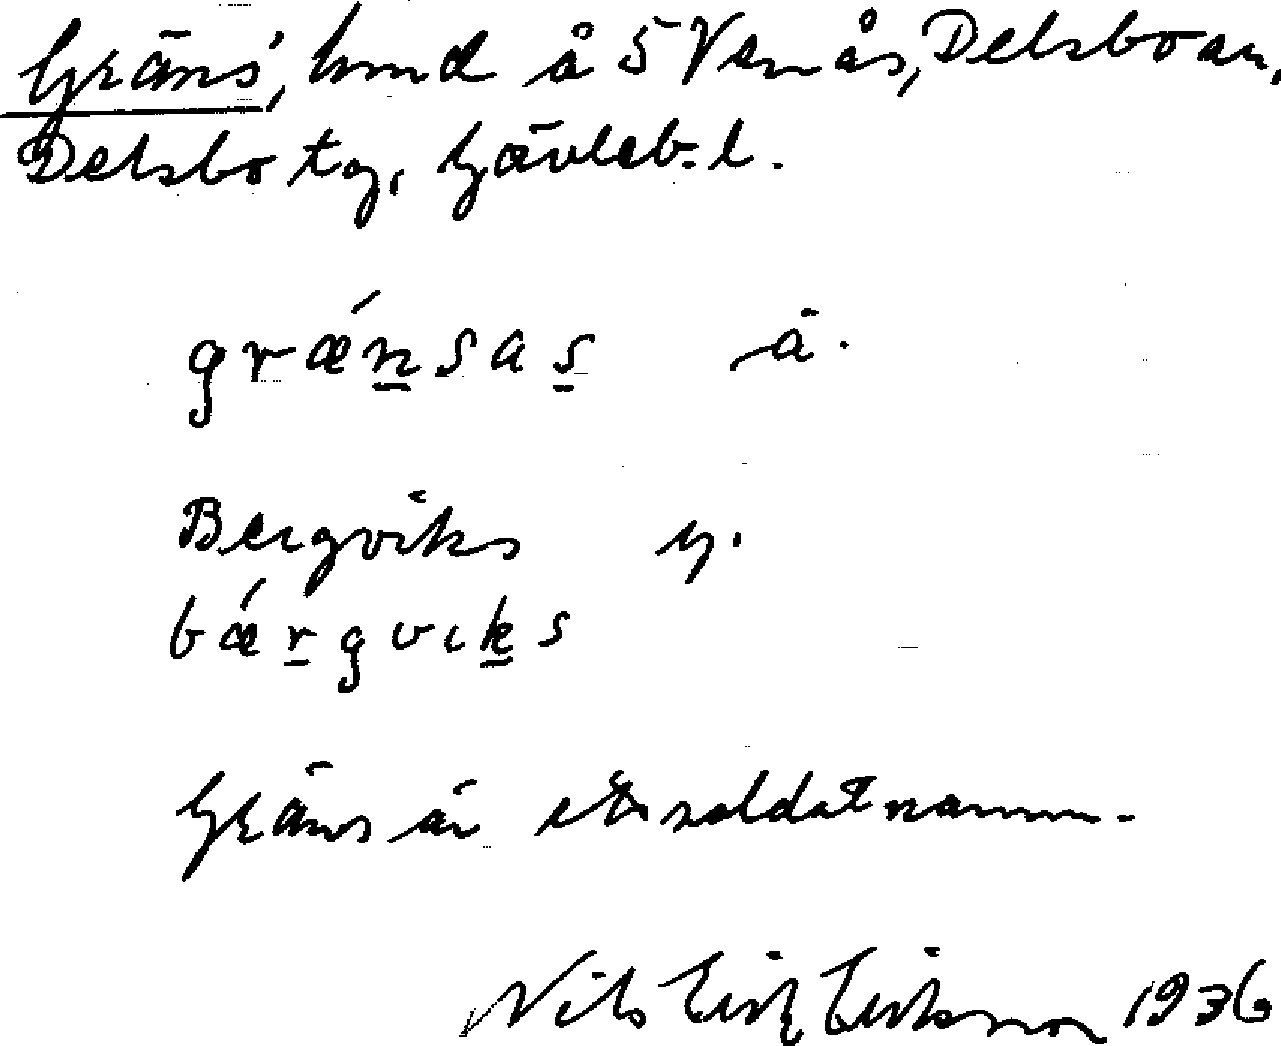 Gräns, hmd å 5 Venås, Delsbo sn,
Delsbo tg, Gävleb. l.
grǽnsas ä.
Bergviks y.
bǽrgviks
Gräns är ett soldatnamn.
Nils Erik Eriksson 1936